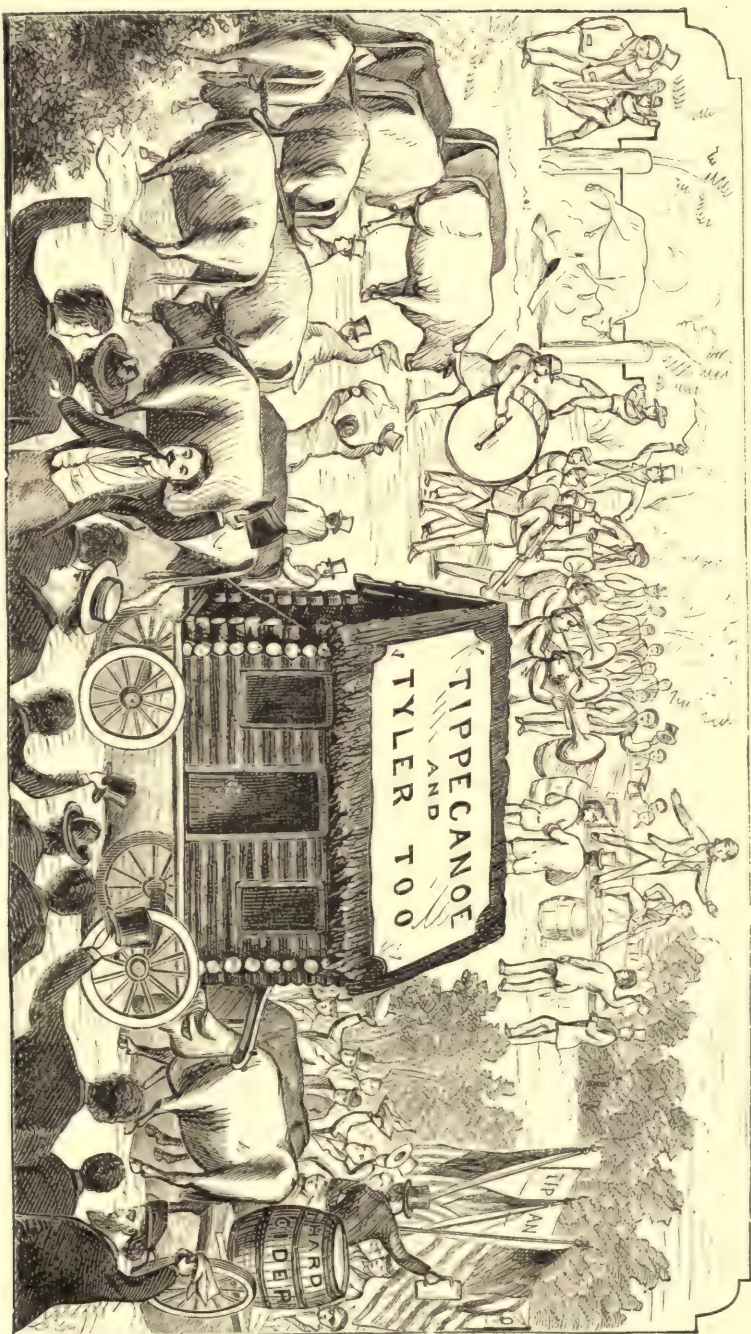 TIPPECANOE
AND
TYLER TOO
HARD
CIDER
TIP
AN